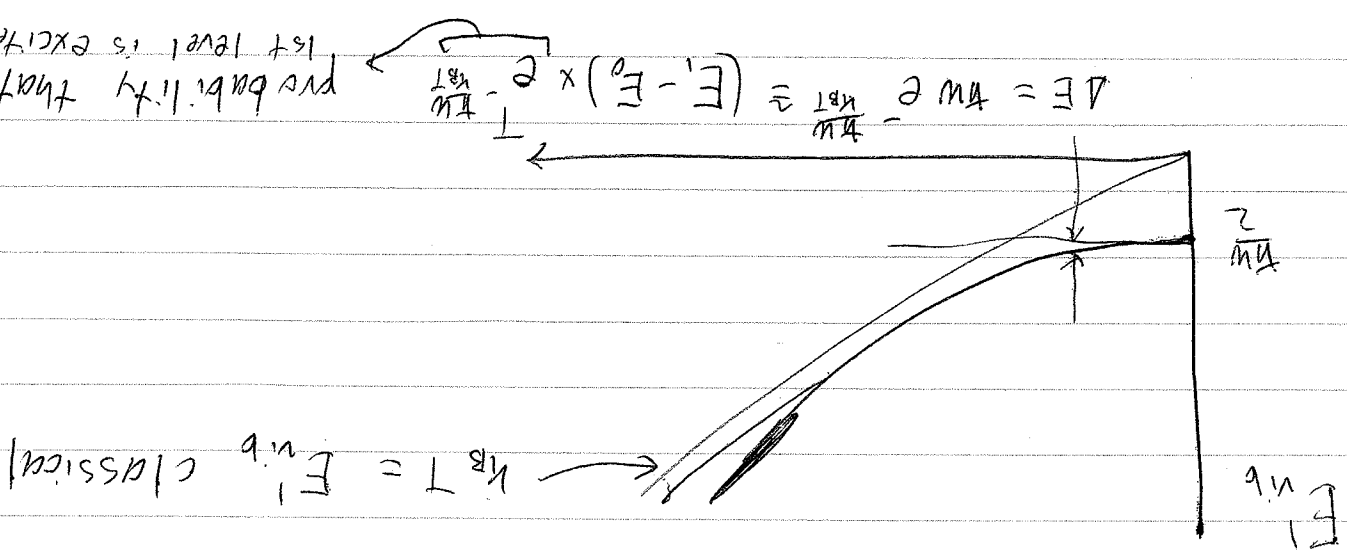 E'vib
k_B T = E'vib classical
ħω/2
T
ΔE = ħω e^(-ħω/k_BT) ≅ (E_1 - E_0) × e^(-ħω/k_BT)
probability that
1st level is excite